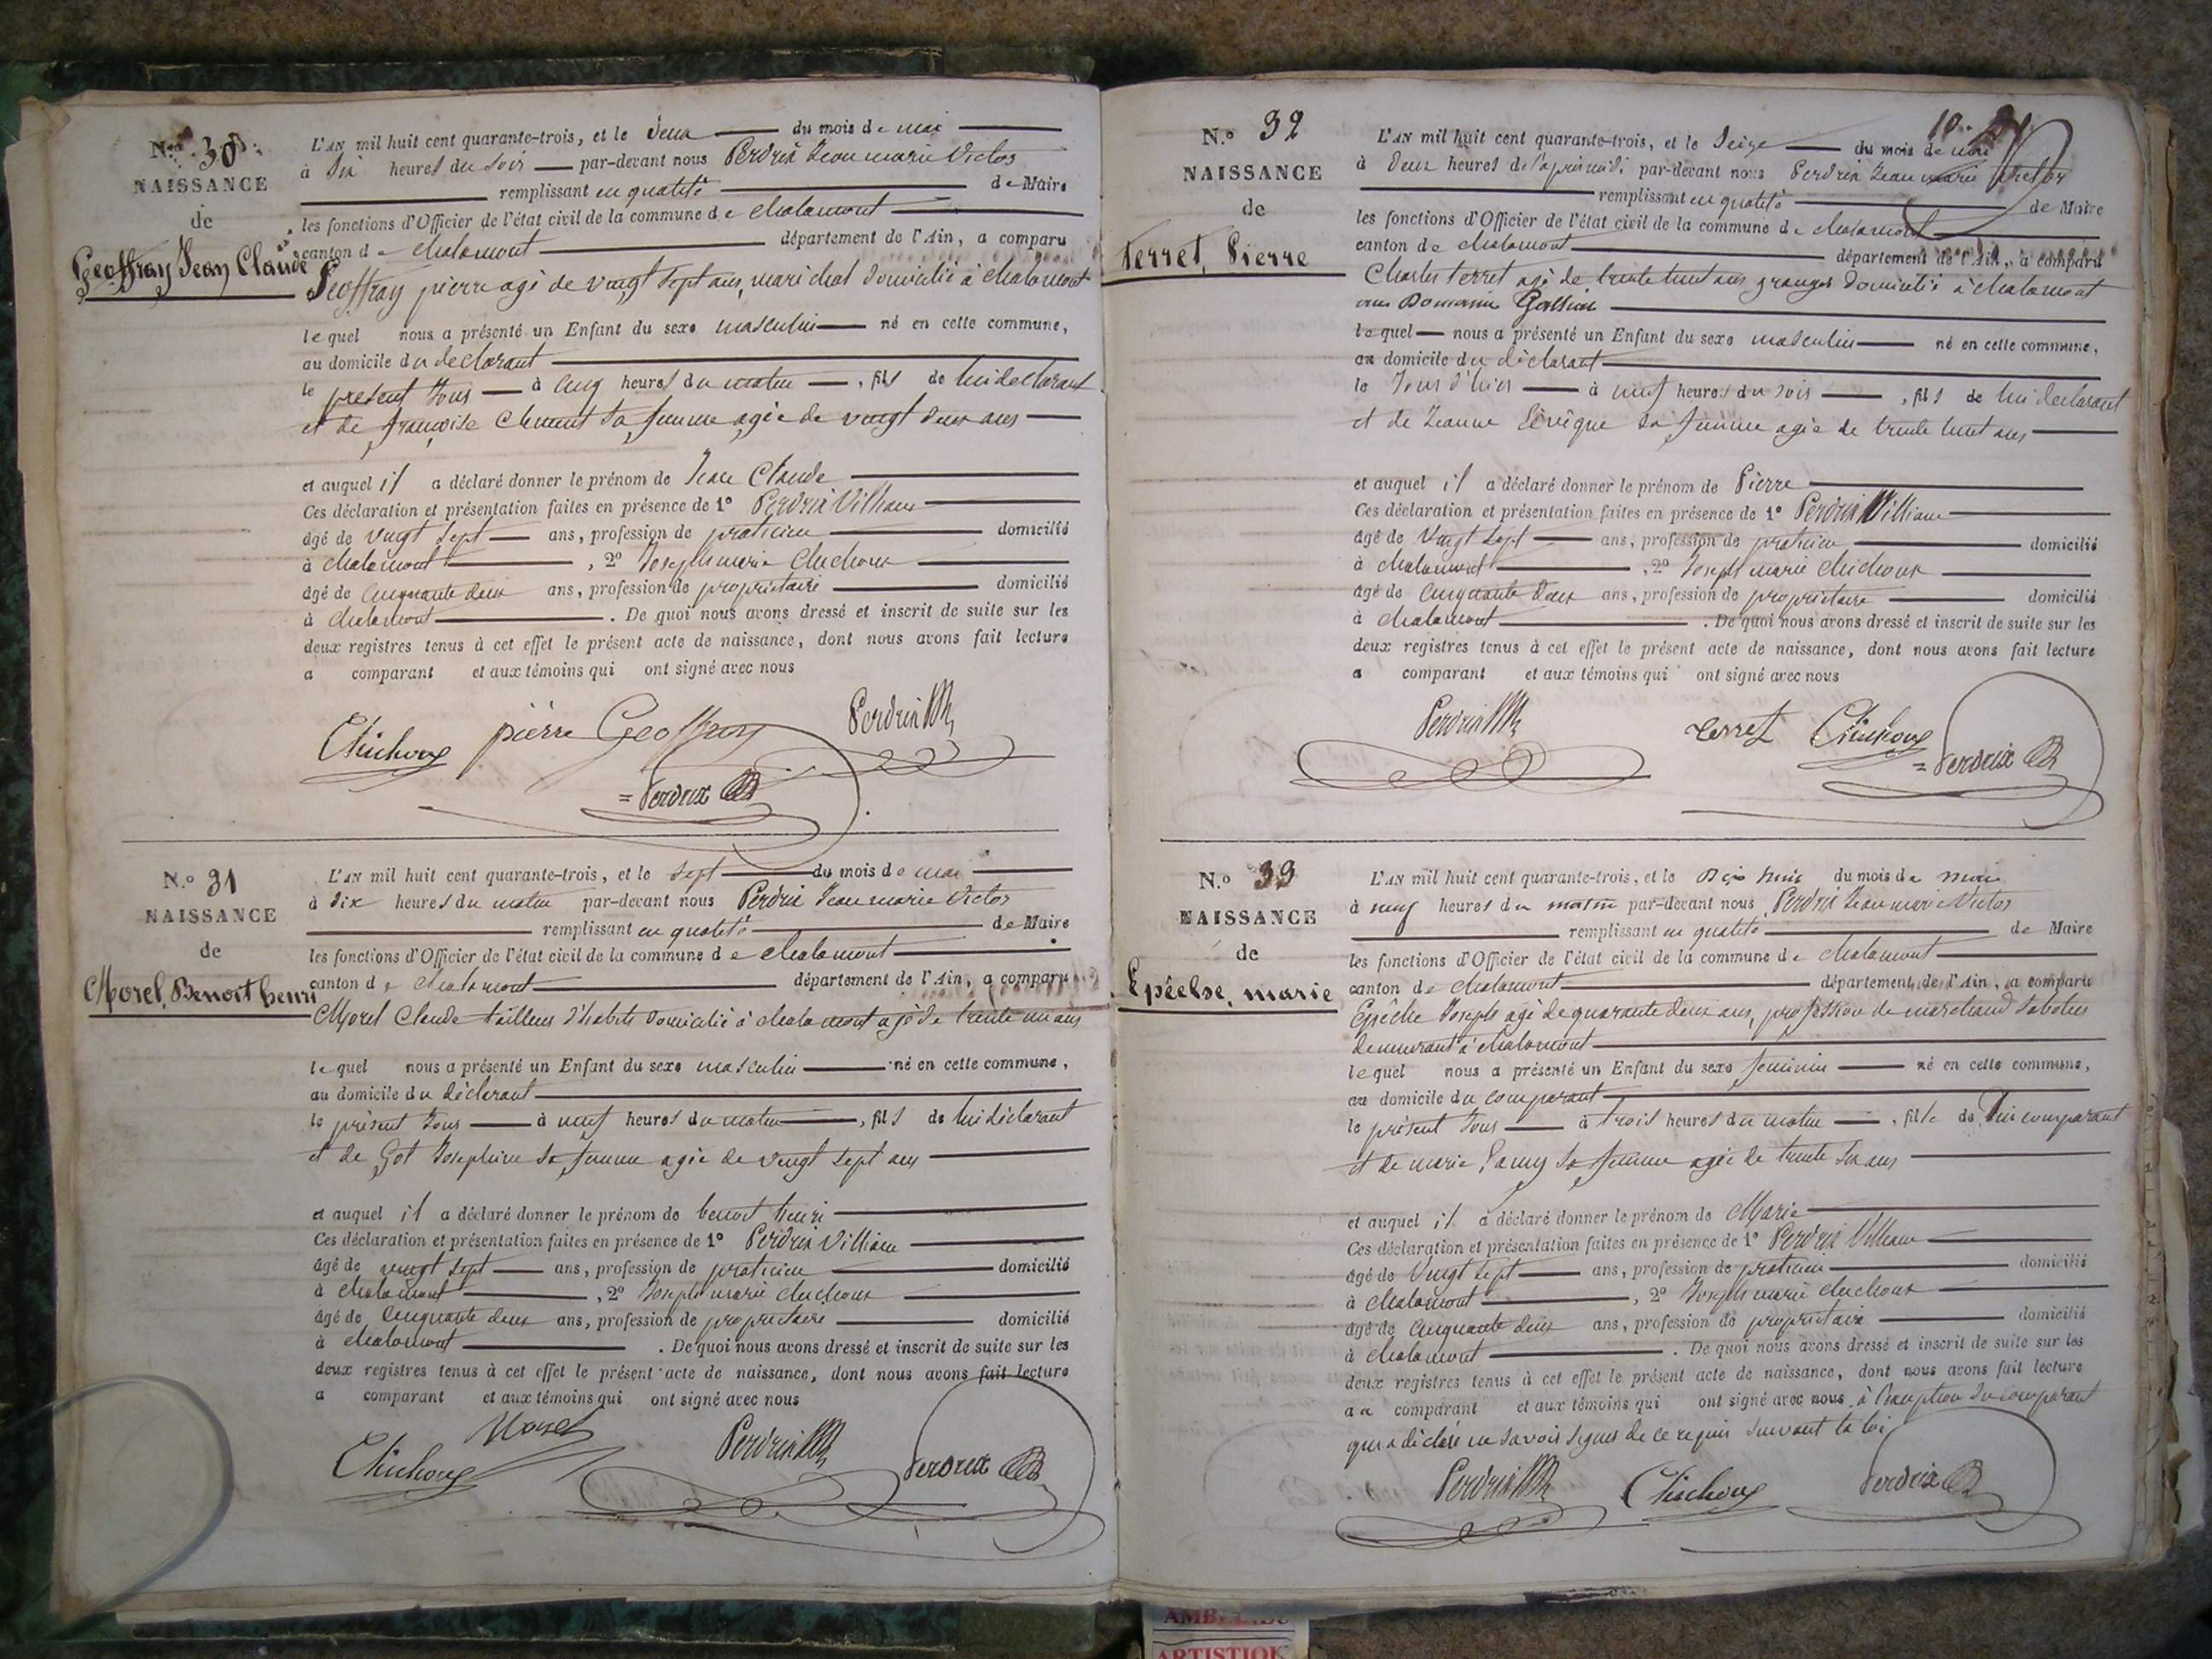 N.º 30
NAISSANCE
de
Geoffray Jean Claude
L'AN mil huit cent quarante-trois, et le deux du mois de mai
à six heures du soir par-devant nous Perdrix Jean marie Victor
remplissant en qualité de Maire
les fonctions d'Officier de l'état civil de la commune de chalamont
canton de chalamont département de l'Ain, a comparu
Geoffray pierre agé de vingt sept ans, maréchal domicilié à chalamont
lequel nous a présenté un Enfant du sexe masculin né en cette commune,
au domicile du declarant
le présent Jour à cinq heures du matin, fils de lui declarant
et de françoise Clement sa femme agée de vingt deux ans
et auquel il a déclaré donner le prénom de Jean Claude
Ces déclaration et présentation faites en présence de 1º Perdrix William
âgé de vingt sept ans, profession de praticien domicilié
à chalamont, 2º Joseph marie Chichoux
âgé de cinquante deux ans, profession de propriétaire domicilié
à chalamont. De quoi nous avons dressé et inscrit de suite sur les
deux registres tenus à cet effet le présent acte de naissance, dont nous avons fait lecture
a comparant et aux témoins qui ont signé avec nous
Chichoux pièrre Geoffray Perdrix
= Perdrix
N.º 31
NAISSANCE
de
Morel, Benoit henri
L'AN mil huit cent quarante-trois, et le sept du mois de mai
à dix heures du matin par-devant nous Perdrix Jean marie Victor
remplissant en qualité de Maire
les fonctions d'Officier de l'état civil de la commune de chalamont
canton de chalamont département de l'Ain, a comparu
Morel Claude tailleur d'habits domicilié à chalamont agé de trente un ans
lequel nous a présenté un Enfant du sexe masculin né en cette commune,
au domicile du déclarant
le présent Jour à neuf heures du matin, fils de lui déclarant
et de Got Josephine sa femme agée de vingt sept ans
et auquel il a déclaré donner le prénom de benoit henri
Ces déclaration et présentation faites en présence de 1º Perdrix William
âgé de vingt sept ans, profession de praticien domicilié
à chalamont, 2º Joseph marie chichoux
âgé de cinquante deux ans, profession de propriétaire domicilié
à chalamont. De quoi nous avons dressé et inscrit de suite sur les
deux registres tenus à cet effet le présent acte de naissance, dont nous avons fait lecture
a comparant et aux témoins qui ont signé avec nous
Morel
Chichoux Perdrix Perdrix
N.º 32
NAISSANCE
de
Terret, Pierre
L'AN mil huit cent quarante-trois, et le Seize du mois de mai
à deux heures de l'après midi par-devant nous Perdrix Jean marie Victor
remplissant en qualité de Maire
les fonctions d'Officier de l'état civil de la commune de chalamont
canton de chalamont département de l'Ain, a comparu
Charles terret agé de trente huit ans granger domicilié à chalamont
au Domaine
lequel nous a présenté un Enfant du sexe masculin né en cette commune,
au domicile du déclarant
le Jour d'hier à neuf heures du soir, fils de lui declarant
et de Jeanne Lévêque sa femme agée de trente huit ans
et auquel il a déclaré donner le prénom de Pierre
Ces déclaration et présentation faites en présence de 1º Perdrix William
âgé de vingt sept ans, profession de praticien domicilié
à chalamont, 2º Joseph marie chichoux
âgé de cinquante deux ans, profession de propriétaire domicilié
à chalamont. De quoi nous avons dressé et inscrit de suite sur les
deux registres tenus à cet effet le présent acte de naissance, dont nous avons fait lecture
a comparant et aux témoins qui ont signé avec nous
Perdrix terret Chichoux
= Perdrix
N.º 33
NAISSANCE
de
Epêche, marie
L'AN mil huit cent quarante-trois, et le Dix huit du mois de mai
à neuf heures du matin par-devant nous Perdrix Jean marie Victor
remplissant en qualité de Maire
les fonctions d'Officier de l'état civil de la commune de chalamont
canton de chalamont département de l'Ain, a comparu
Epêche Joseph agé de quarante deux ans, profession de marchand sabotier
demeurant à chalamont
lequel nous a présenté un Enfant du sexe feminin né en cette commune,
au domicile du comparant
le présent Jour à trois heures du matin, fille de lui comparant
et de marie sa femme agée de trente six ans
et auquel il a déclaré donner le prénom de Marie
Ces déclaration et présentation faites en présence de 1º Perdrix William
âgé de Vingt sept ans, profession de praticien domicilié
à chalamont, 2º Joseph marie chichoux
âgé de cinquante deux ans, profession de propriétaire domicilié
à chalamont. De quoi nous avons dressé et inscrit de suite sur les
deux registres tenus à cet effet le présent acte de naissance, dont nous avons fait lecture
au comparant et aux témoins qui ont signé avec nous à l'exception du comparant
qui a déclaré ne savoir signer de ce requis suivant la loi
Perdrix Chichoux Perdrix
ARTISTIQ